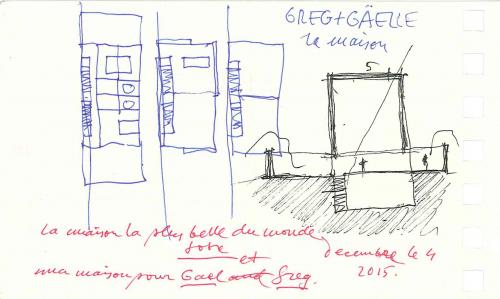 GREG+GÄELLE
la maison
5
la maison la plus belle du monde,
et decembre le 4
mea maison pour Gael and Greg. 2015.